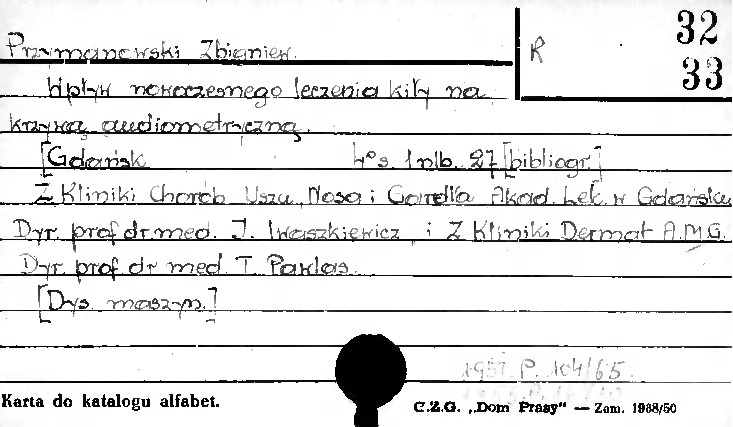 Przymanowski Zbigniew.
R
32
33
Wpływ nowoczesnego leczenia kiły na
krzywą audiometryczną.
[Gdańsk 4°s. 1 nlb. 27 [bibliogr.]
Z Kliniki Chorób Uszu, Nosa i Gardła Akad. Lek. w Gdańsku
Dyr. prof dr. med. J. Iwaszkiewicz i Z Kliniki Dermat A.M.G.
Dyr. prof dr med. T. Pawlas.
[Dys. maszyn.]
P. 104/65.
Karta do katalogu alfabet.
C.Z.G. „Dom Prasy" — Zam. 1988/50